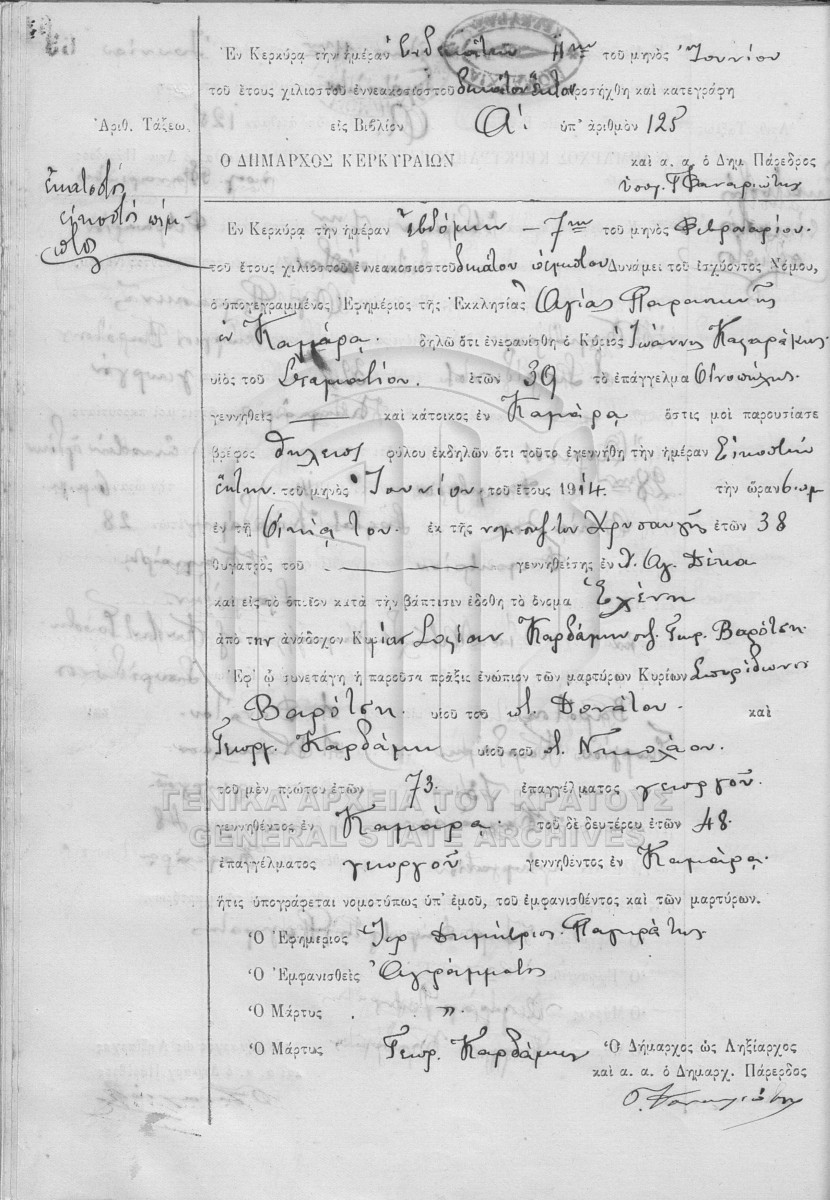 Ἐν Κερκύρᾳ τὴν ἡμέραν ἑνδεκάτην 11ην τοῦ μηνὸς Ἰουνίου
τοῦ ἔτους χιλιοστοῦ ἐννεακοσιοστοῦ δεκάτου προσήχθη καὶ κατεγράφη
Ἀριθ. Τάξεω. εἰς Βιβλίον Α'. ὑπ' ἀριθμὸν 125
Ο ΔΗΜΑΡΧΟΣ ΚΕΡΚΥΡΑΙΩΝ καὶ α. α. ὁ Δημ. Πάρεδρος
ὑπογ. Φαναριώτης
Ἑκατοστὸς
εἰκοστὸς πέμ-
πτος
Ἐν Κερκύρᾳ τὴν ἡμέραν Ἑβδόμην – 7ην τοῦ μηνὸς Φεβρουαρίου.
τοῦ ἔτους χιλιοστοῦ ἐννεακοσιοστοῦ δεκάτου πέμπτου Δυνάμει τοῦ ἰσχύοντος Νόμου,
ὁ ὑπογεγραμμένος Ἐφημέριος τῆς Ἐκκλησίας Ἁγίας Παρασκευῆς
ἐν Καμάρᾳ. δηλῶ ὅτι ἐνεφανίσθη ὁ Κύριος Ἰωάννης
υἱὸς τοῦ Σταματίου. ἐτῶν 39 τὸ ἐπάγγελμα Οἰνοπώλης.
γεννηθεὶς — καὶ κάτοικος ἐν Καμάρᾳ ὅστις μοὶ παρουσίασε
βρέφος θήλεος φύλου ἐκδηλῶν ὅτι τοῦτο ἐγεννήθη τὴν ἡμέραν Εἰκοστὴν
ἕκτην. τοῦ μηνὸς Ἰουνίου. τοῦ ἔτους 1914. τὴν ὥραν 6 πμ
ἐν τῇ Οἰκίᾳ του. ἐκ τῆς νομ. συζ. του Χρυσαυγῆς ἐτῶν 38
θυγατρὸς τοῦ — γεννηθείσης ἐν Χ. Αγ. Δέκα
καὶ εἰς τὸ ὁποῖον κατὰ τὴν βάπτισιν ἐδόθη τὸ ὄνομα Ἑλένη
ἀπὸ τὴν ἀνάδοχον Κυρίαν Σοφίαν Καρδάμη συζ. Γεωρ. Βαρότση.
Ἐφ' ᾧ συνετάγη ἡ παροῦσα πρᾶξις ἐνώπιον τῶν μαρτύρων Κυρίων Σπυρίδωνος
Βαρότση. υἱοῦ τοῦ ποτ. Δονάτου. καὶ
Γεωργ. Καρδάμη υἱοῦ τοῦ ποτ. Νικολάου.
τοῦ μὲν πρώτου ἐτῶν 73. ἐπαγγέλματος γεωργοῦ.
ΓΕΝΙΚΑ ΑΡΧΕΙΑ ΤΟΥ ΚΡΑΤΟΥΣ
γεννηθέντος ἐν Καμάρᾳ. τοῦ δὲ δευτέρου ἐτῶν 48.
GENERAL STATE ARCHIVES
ἐπαγγέλματος γεωργοῦ γεννηθέντος ἐν Καμάρᾳ.
ἥτις ὑπογράφεται νομοτύπως ὑπ' ἐμοῦ, τοῦ ἐμφανισθέντος καὶ τῶν μαρτύρων.
Ὁ Ἐφημέριος Ἱερ Δημήτριος Παγκράτης.
Ὁ Ἐμφανισθεὶς Ἀγράμματος
Ὁ Μάρτυς . . " .
Ὁ Μάρτυς Γεωρ. Καρδάμης Ὁ Δήμαρχος ὡς Ληξίαρχος
καὶ α. α. ὁ Δημαρχ. Πάρερδος